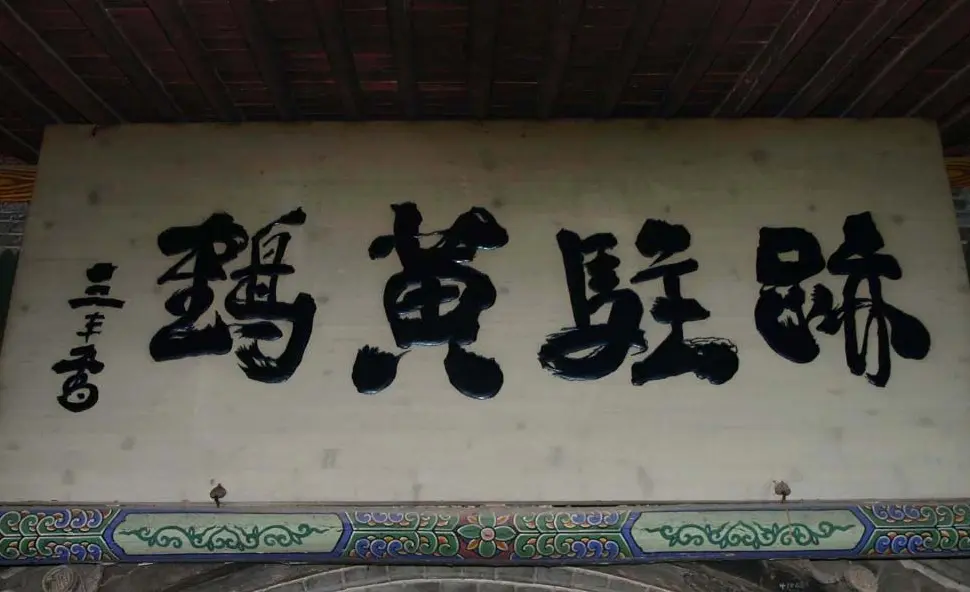 跡駐黃鶴
三丰書